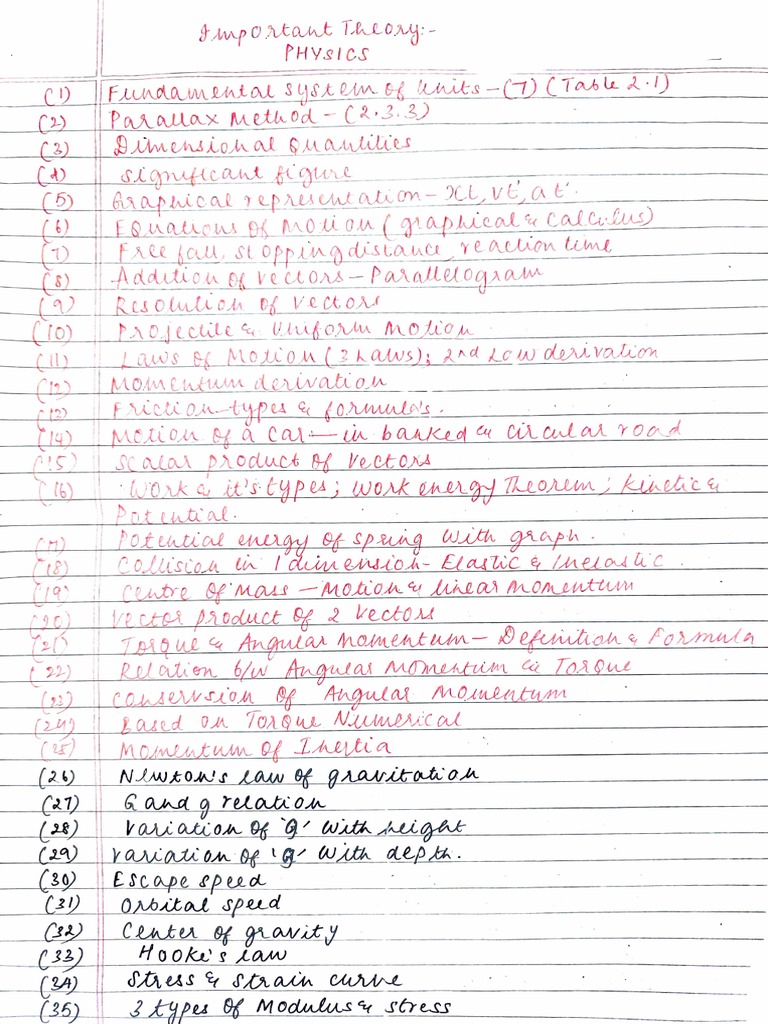 Important Theory:-
PHYSICS
(1) Fundamental System of Units - (7) (Table 2.1)
(2) Parallax Method - (2.3.3)
(3) Dimensional Quantities
(4) Significant figure
(5) Graphical representation - xt, vt, at.
(6) Equations of Motion (graphical & calculus)
(7) Free fall, stopping distance, reaction time
(8) Addition of vectors - Parallelogram
(9) Resolution of vectors
(10) Projectile & Uniform Motion
(11) Laws of Motion (3 Laws); 2nd Law derivation
(12) Momentum derivation
(13) Friction-types & formula's.
(14) Motion of a car - in banked & circular road
(15) Scalar product of vectors
(16) Work & it's types; work energy Theorem; kinetic &
Potential.
(17) Potential energy of spring with graph.
(18) Collision in 1 dimension - Elastic & Inelastic.
(19) Centre of mass - Motion & linear momentum
(20) Vector product of 2 vectors
(21) Torque & Angular momentum - Definition & Formula
(22) Relation b/w Angular Momentum & Torque
(23) Conservsion of Angular Momentum
(24) Based on Torque Numerical
(25) Momentum of Inertia
(26) Newton's law of gravitation
(27) G and g relation
(28) Variation of 'g' with height
(29) Variation of 'g' with depth.
(30) Escape speed
(31) Orbital speed
(32) Center of gravity
(33) Hooke's law
(34) Stress & strain curve
(35) 3 types of Modulus & stress